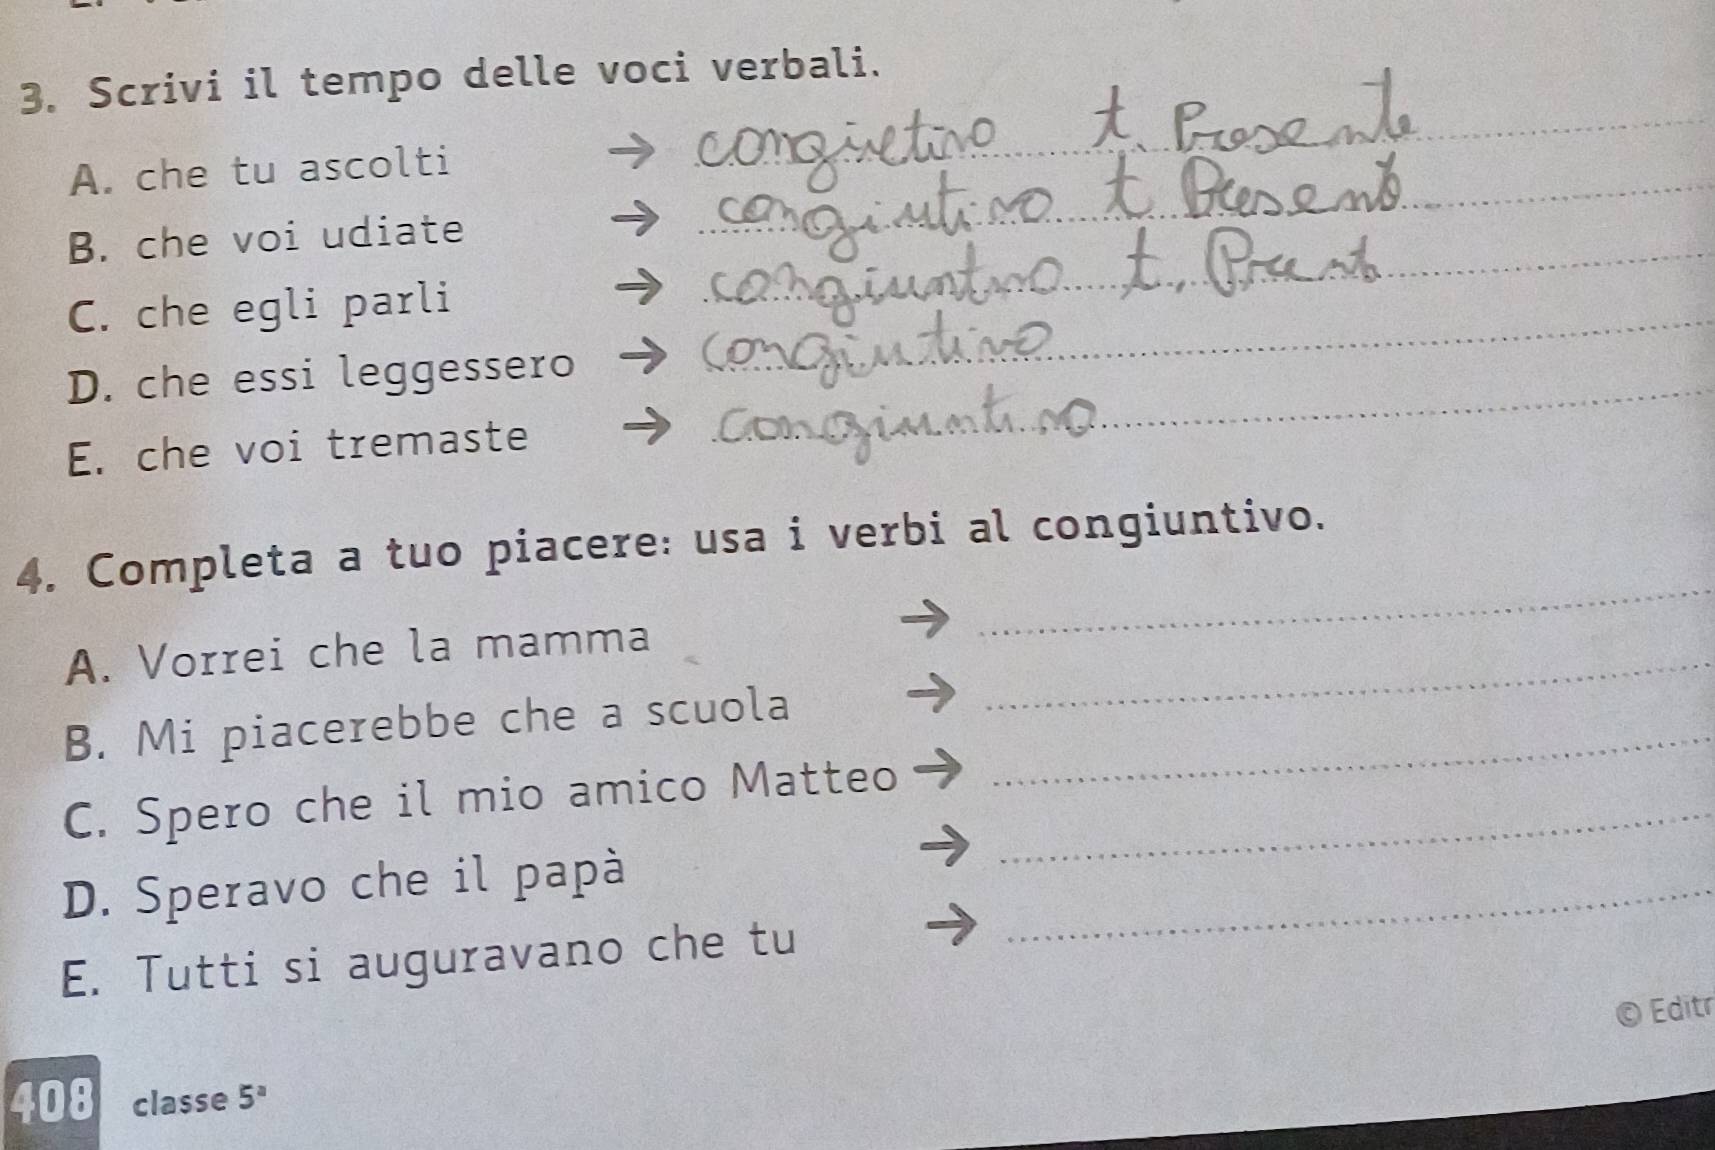 3. Scrivi il tempo delle voci verbali.
A. che tu ascolti → congiutivo t. Presente
B. che voi udiate → congiutivo t Presente
C. che egli parli → congiuntivo t.
D. che essi leggessero → congiutivo
E. che voi tremaste → congiuntivo
4. Completa a tuo piacere: usa i verbi al congiuntivo.
A. Vorrei che la mamma →
B. Mi piacerebbe che a scuola →
C. Spero che il mio amico Matteo →
D. Speravo che il papà →
E. Tutti si auguravano che tu →
© Editr
408 classe 5ª